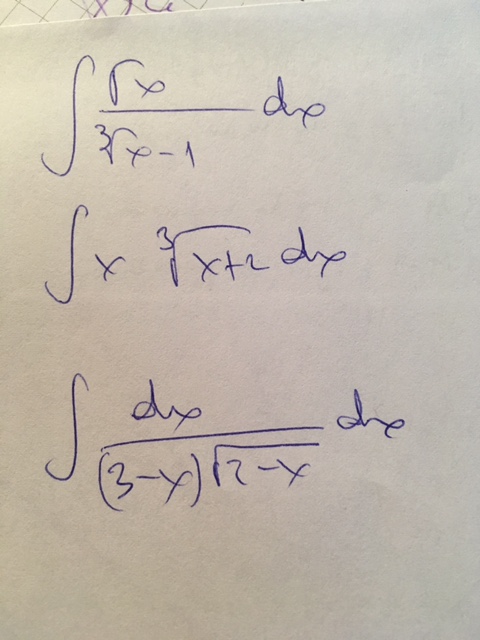 ∫ √x / (∛x - 1) dx
∫ x ∛(x+2) dx
∫ dx / ((3-x)√(2-x)) dx